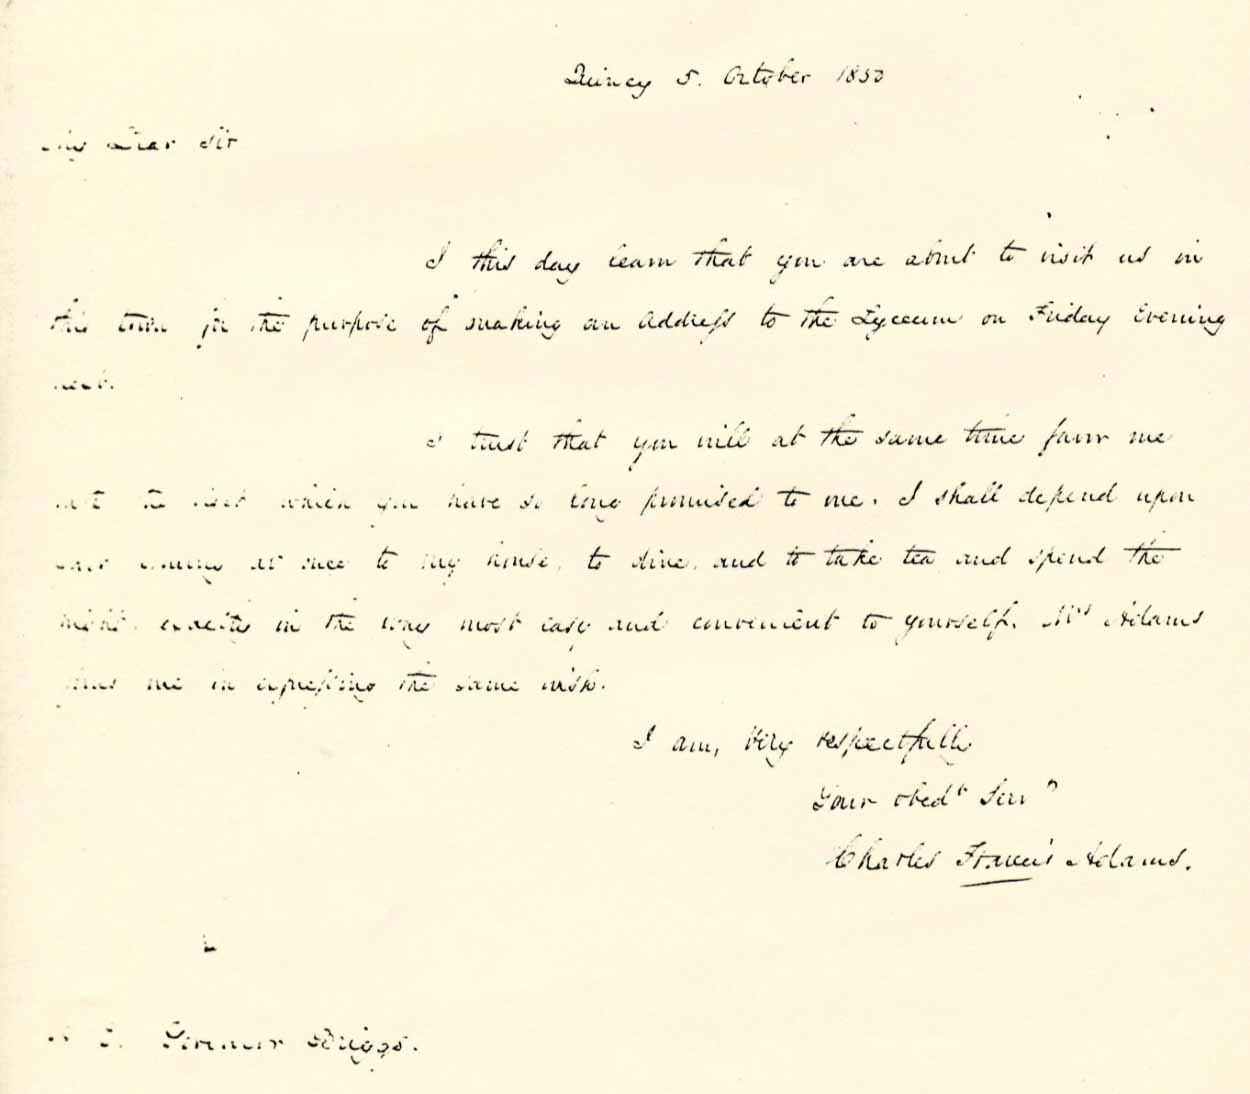 Quincy 5. October 1850
My Dear Sir
I this day learn that you are about to visit us in
this town for the purpose of making an Address to the Lyceum on Friday Evening
next.
I trust that you will at the same time favor me
with the visit which you have so long promised to me. I shall depend upon
your coming at once to my house, to dine, and to take tea and spend the
night, exactly in the way most easy and convenient to yourself. Mrs Adams
joins me in expressing the same wish.
I am, Very respectfully
Your obedt Servt
Charles Francis Adams.
Governor Briggs.